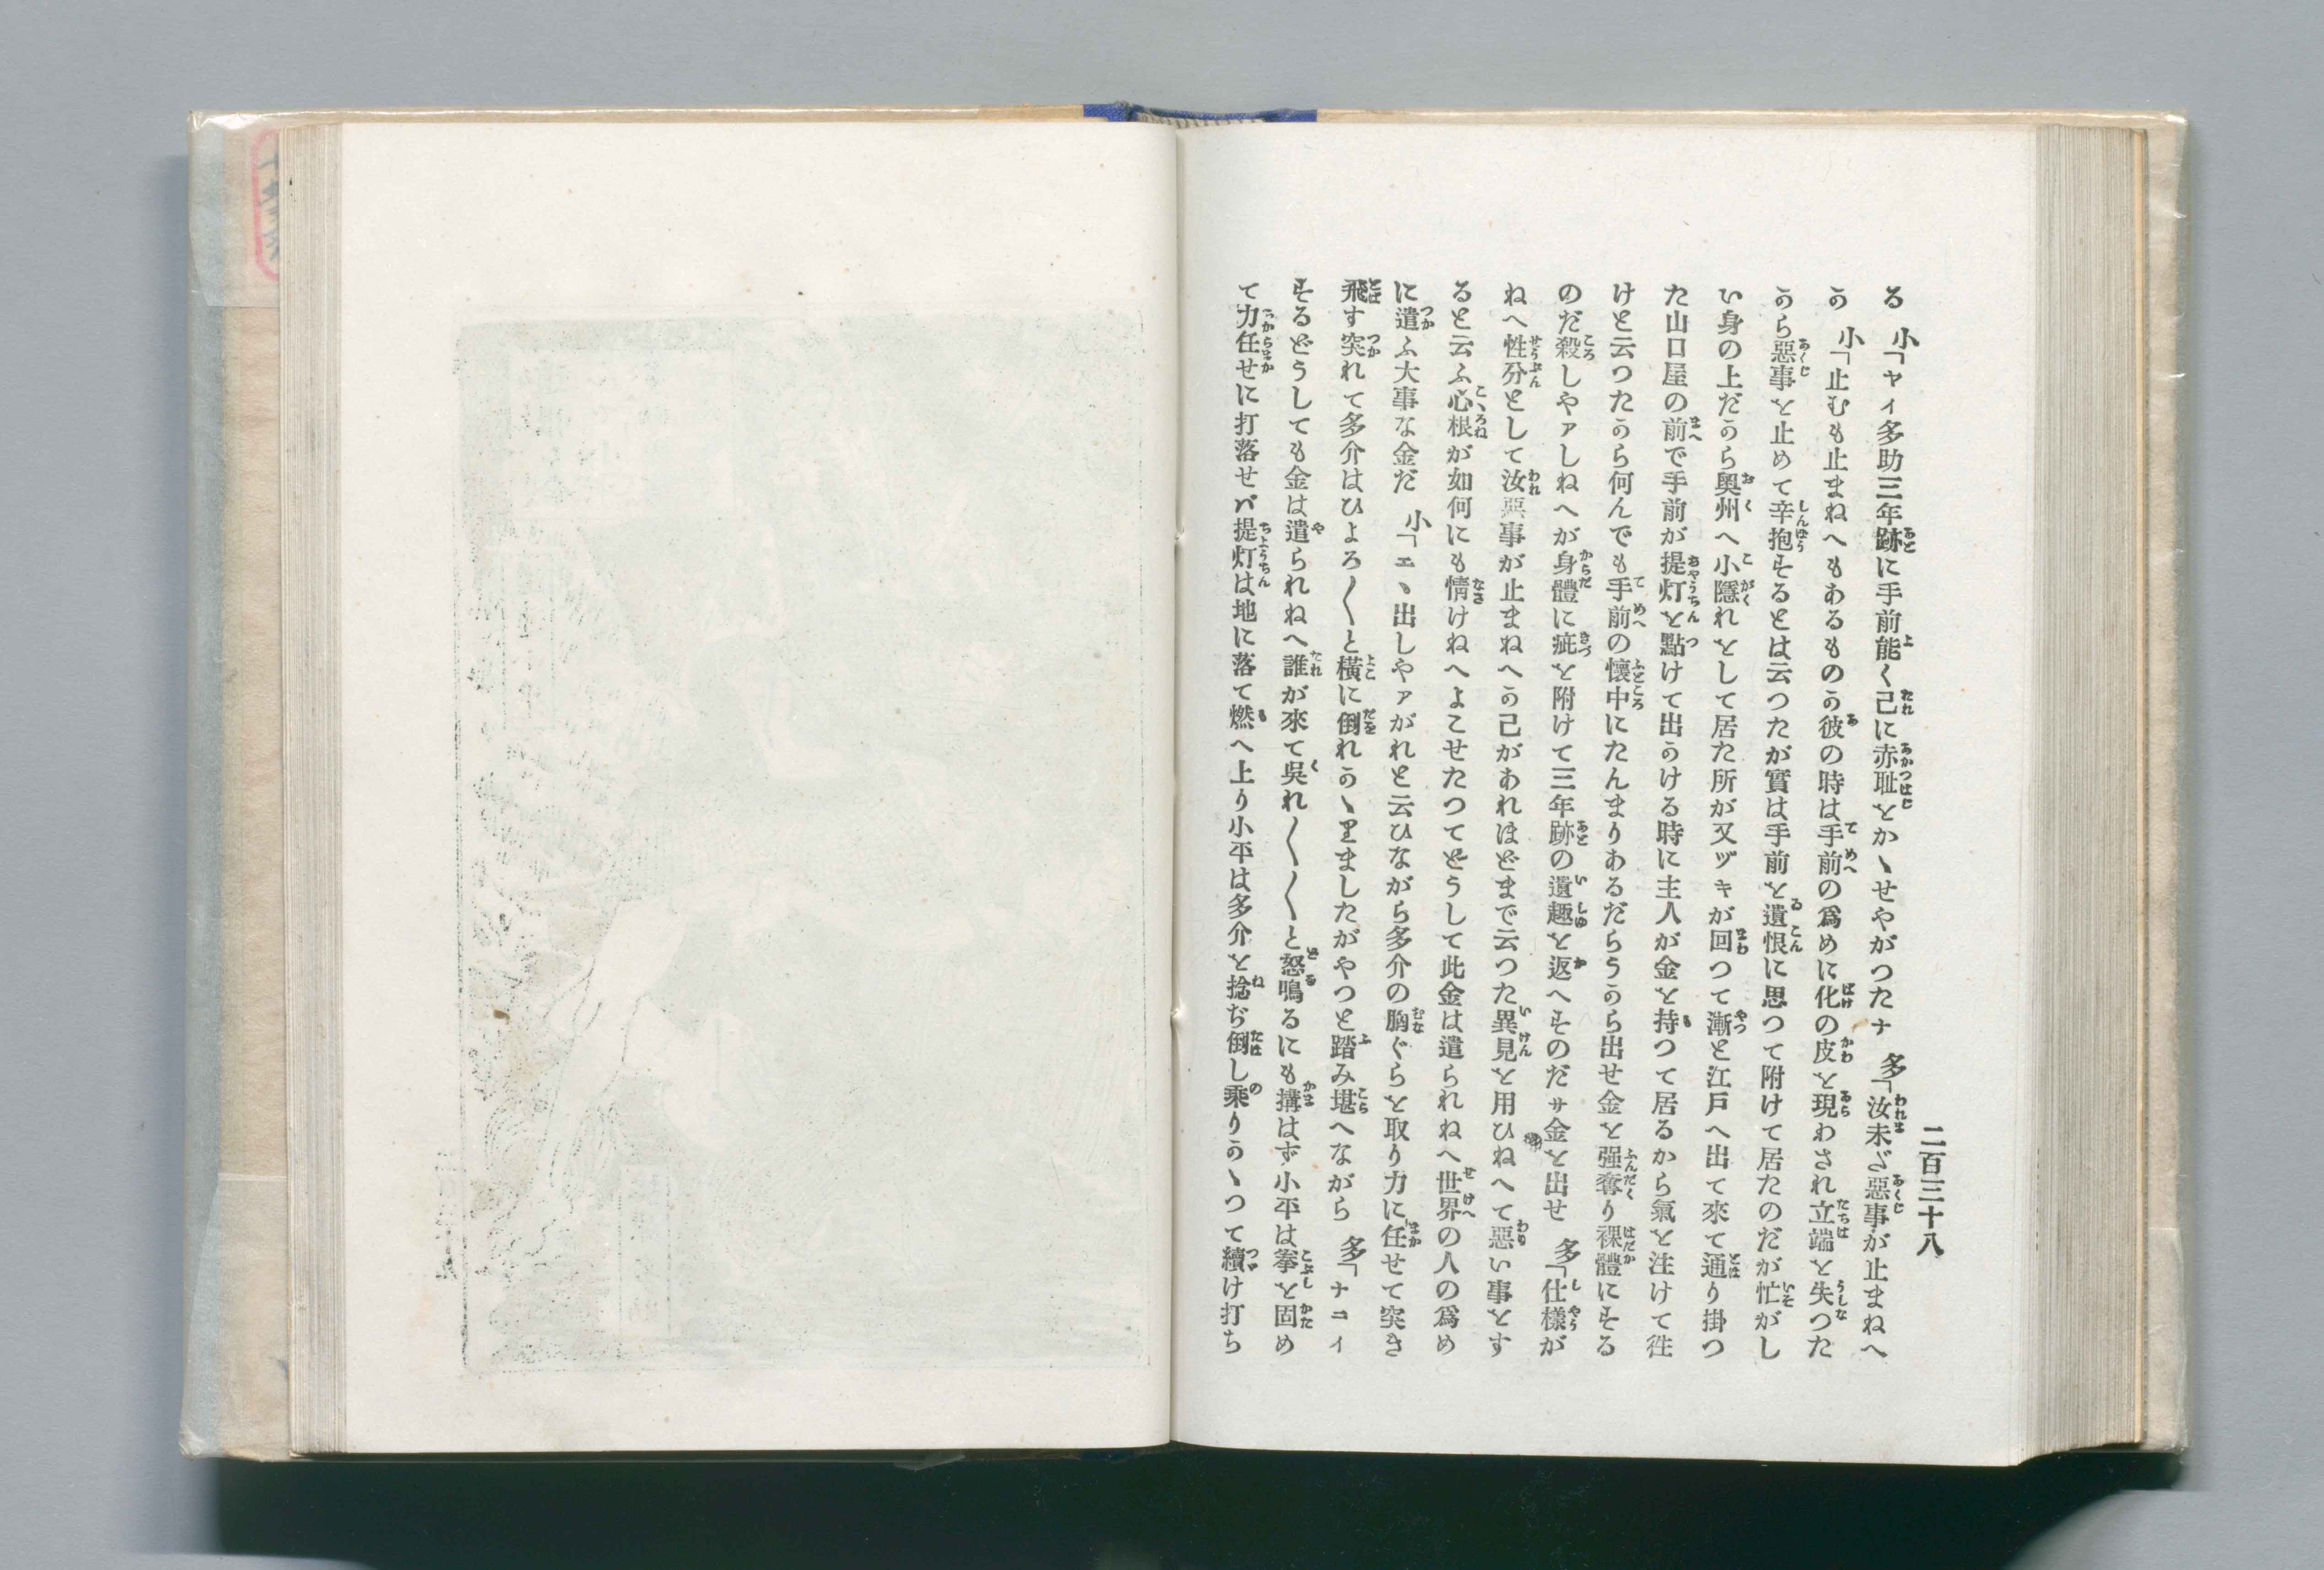 二百三十八
る　小「ヤイ多助三年跡に手前能く己に赤耻をかゝせやがつたナ　多「汝未ざ惡事が止まねへ
か　小「止むも止まねへもあるものか彼の時は手前の爲めに化の皮を現わされ立端を失つた
から惡事を止めて辛抱するとは云つたが實は手前を遺恨に思つて附けて居たのだが忙がし
い身の上だから奧州へ小隱れをして居た所が又ヅキが回つて漸と江戸へ出て來て通り掛つ
た山口屋の前で手前が提灯を點けて出かける時に主人が金を持つて居るから氣を注けて徃
けと云つたから何んでも手前の懷中にたんまりあるだらうから出せ金を强奪り裸體にする
のだ殺しやァしねへが身體に疵を附けて三年跡の遺趣を返へすのだサ金を出せ　多「仕樣が
ねへ性分として汝惡事が止まねへか己があれほどまで云つた異見を用ひねへて惡い事をす
ると云ふ心根が如何にも情けねへよこせたつてどうして此金は遣られねへ世界の人の爲め
に遣ふ大事な金だ　小「エヽ出しやァがれと云ひながら多介の胸ぐらを取り力に任せて突き
飛す突れて多介はひよろ〱と橫に倒れかゝりましたがやつと踏み堪へながら　多「ナコイ
するどうしても金は遣られねへ誰が來て吳れ〱〱〱と怒鳴るにも搆はず小平は拳を固め
て力任せに打落せバ提灯は地に落て燃へ上り小平は多介を捻ぢ倒し乘りかゝつて續け打ち